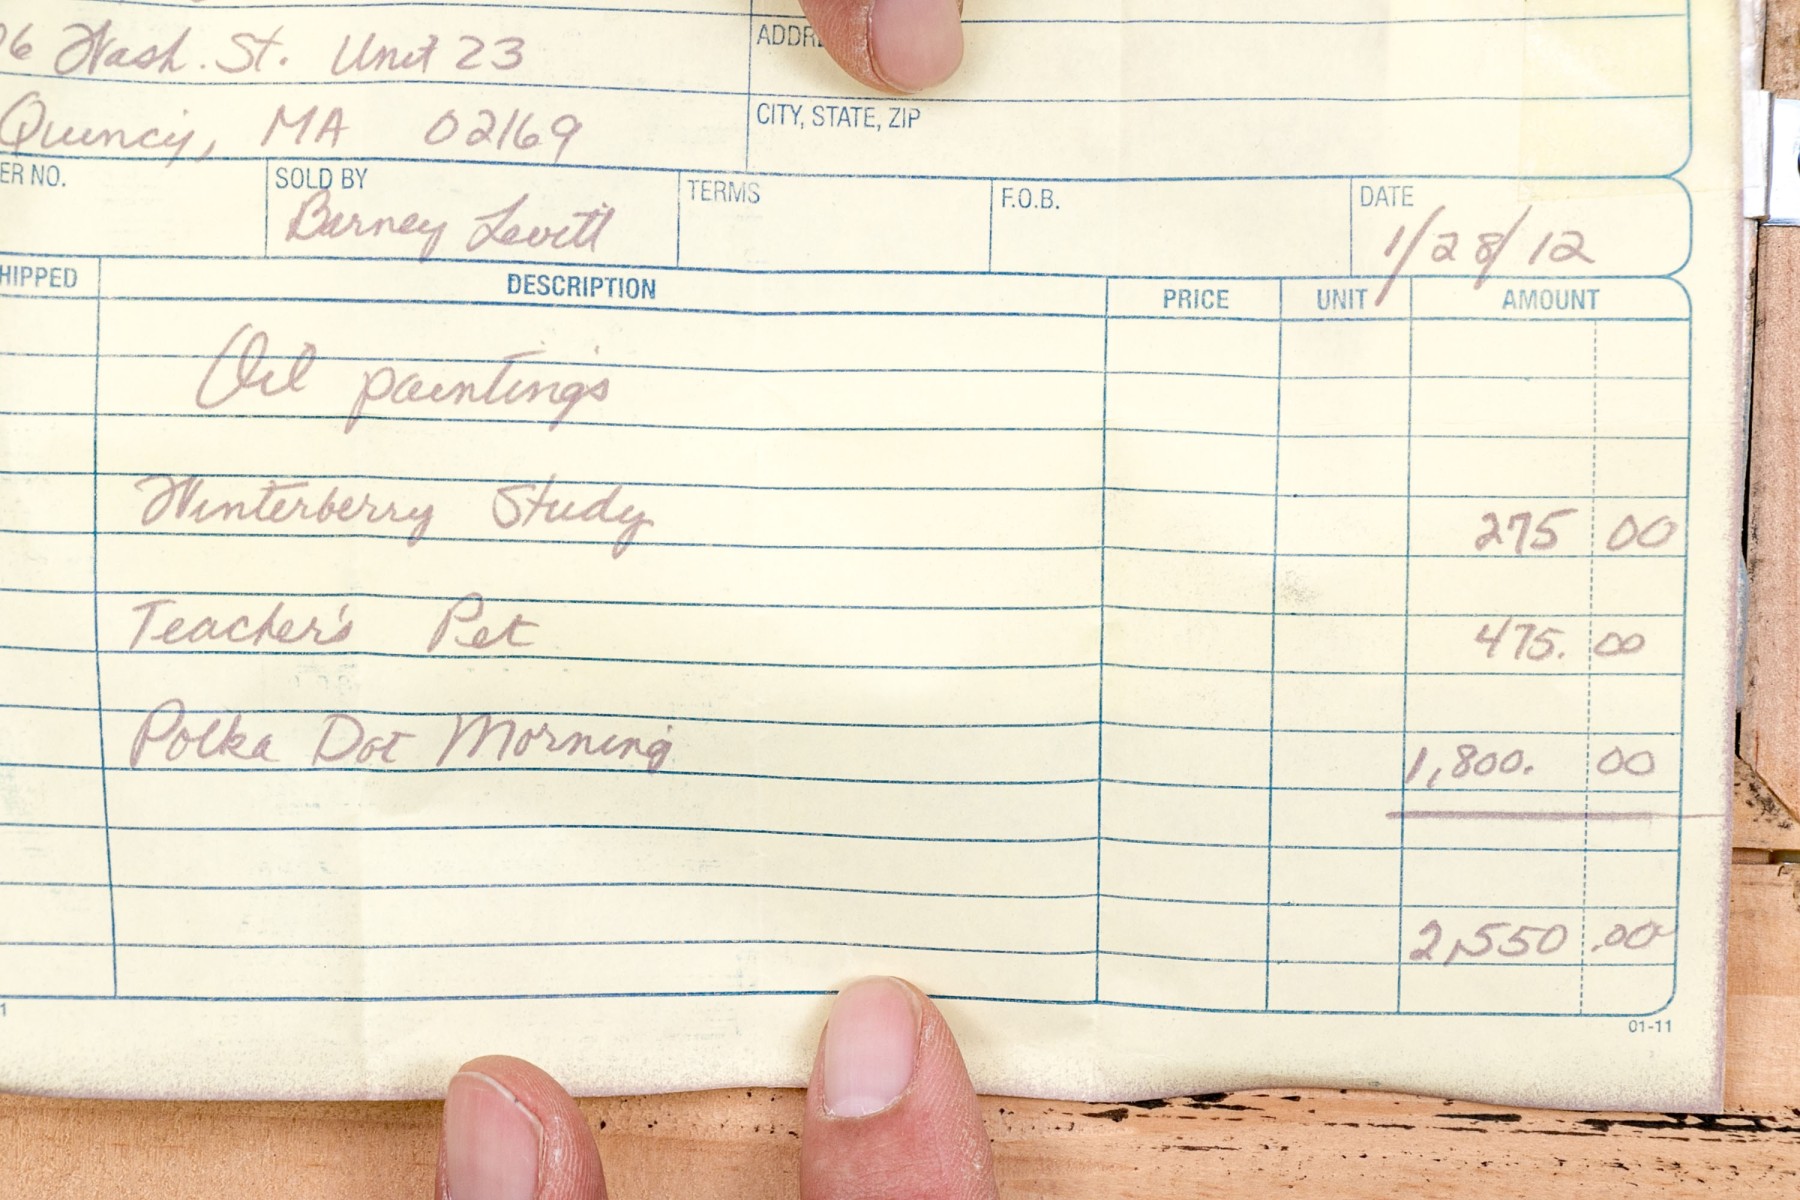 Wash. St. Unit 23
Quincy, MA 02169
CITY, STATE, ZIP
ER NO.
SOLD BY
Barney Levitt
TERMS
F.O.B.
DATE
1/28/12
HIPPED
DESCRIPTION
PRICE
UNIT
AMOUNT
Oil paintings
Winterberry Study 275 00
Teacher's Pet 475. 00
Polka Dot Morning 1,800. 00
2,550 .00
01-11